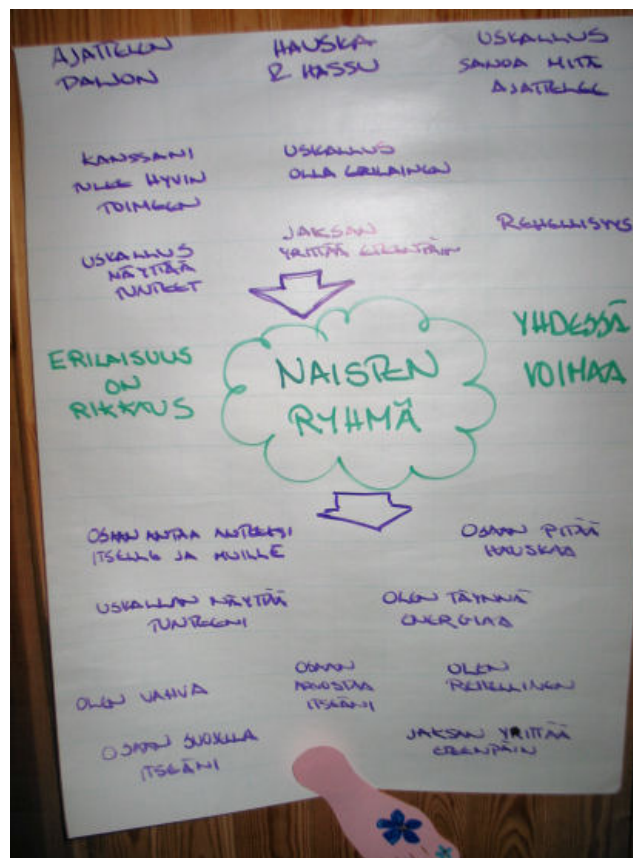 AJATTELEN
PALJON
HAUSKA
& HASSU
USKALLUS
SANOA MITÄ
AJATTELEE
KANSSANI
TULEE HYVIN
TOIMEEN
USKALLUS
OLLA ERILAINEN
USKALLUS
NÄYTTÄÄ
TUNTEET
JAKSAN
YRITTÄÄ ETEENPÄIN
REHELLISYYS
ERILAISUUS
ON
RIKKAUS
NAISTEN
RYHMÄ
YHDESSÄ
VOIMAA
OSAAN ANTAA ANTEEKSI
ITSELLE JA MUILLE
OSAAN PITÄÄ
HAUSKAA
USKALLAN NÄYTTÄÄ
TUNTEENI
OLEN TÄYNNÄ
ENERGIAA
OLEN VAHVA
OSAAN
ARVOSTAA
ITSEÄNI
OLEN
REHELLINEN
OSAAN SUOJELLA
ITSEÄNI
JAKSAN YRITTÄÄ
ETEENPÄIN